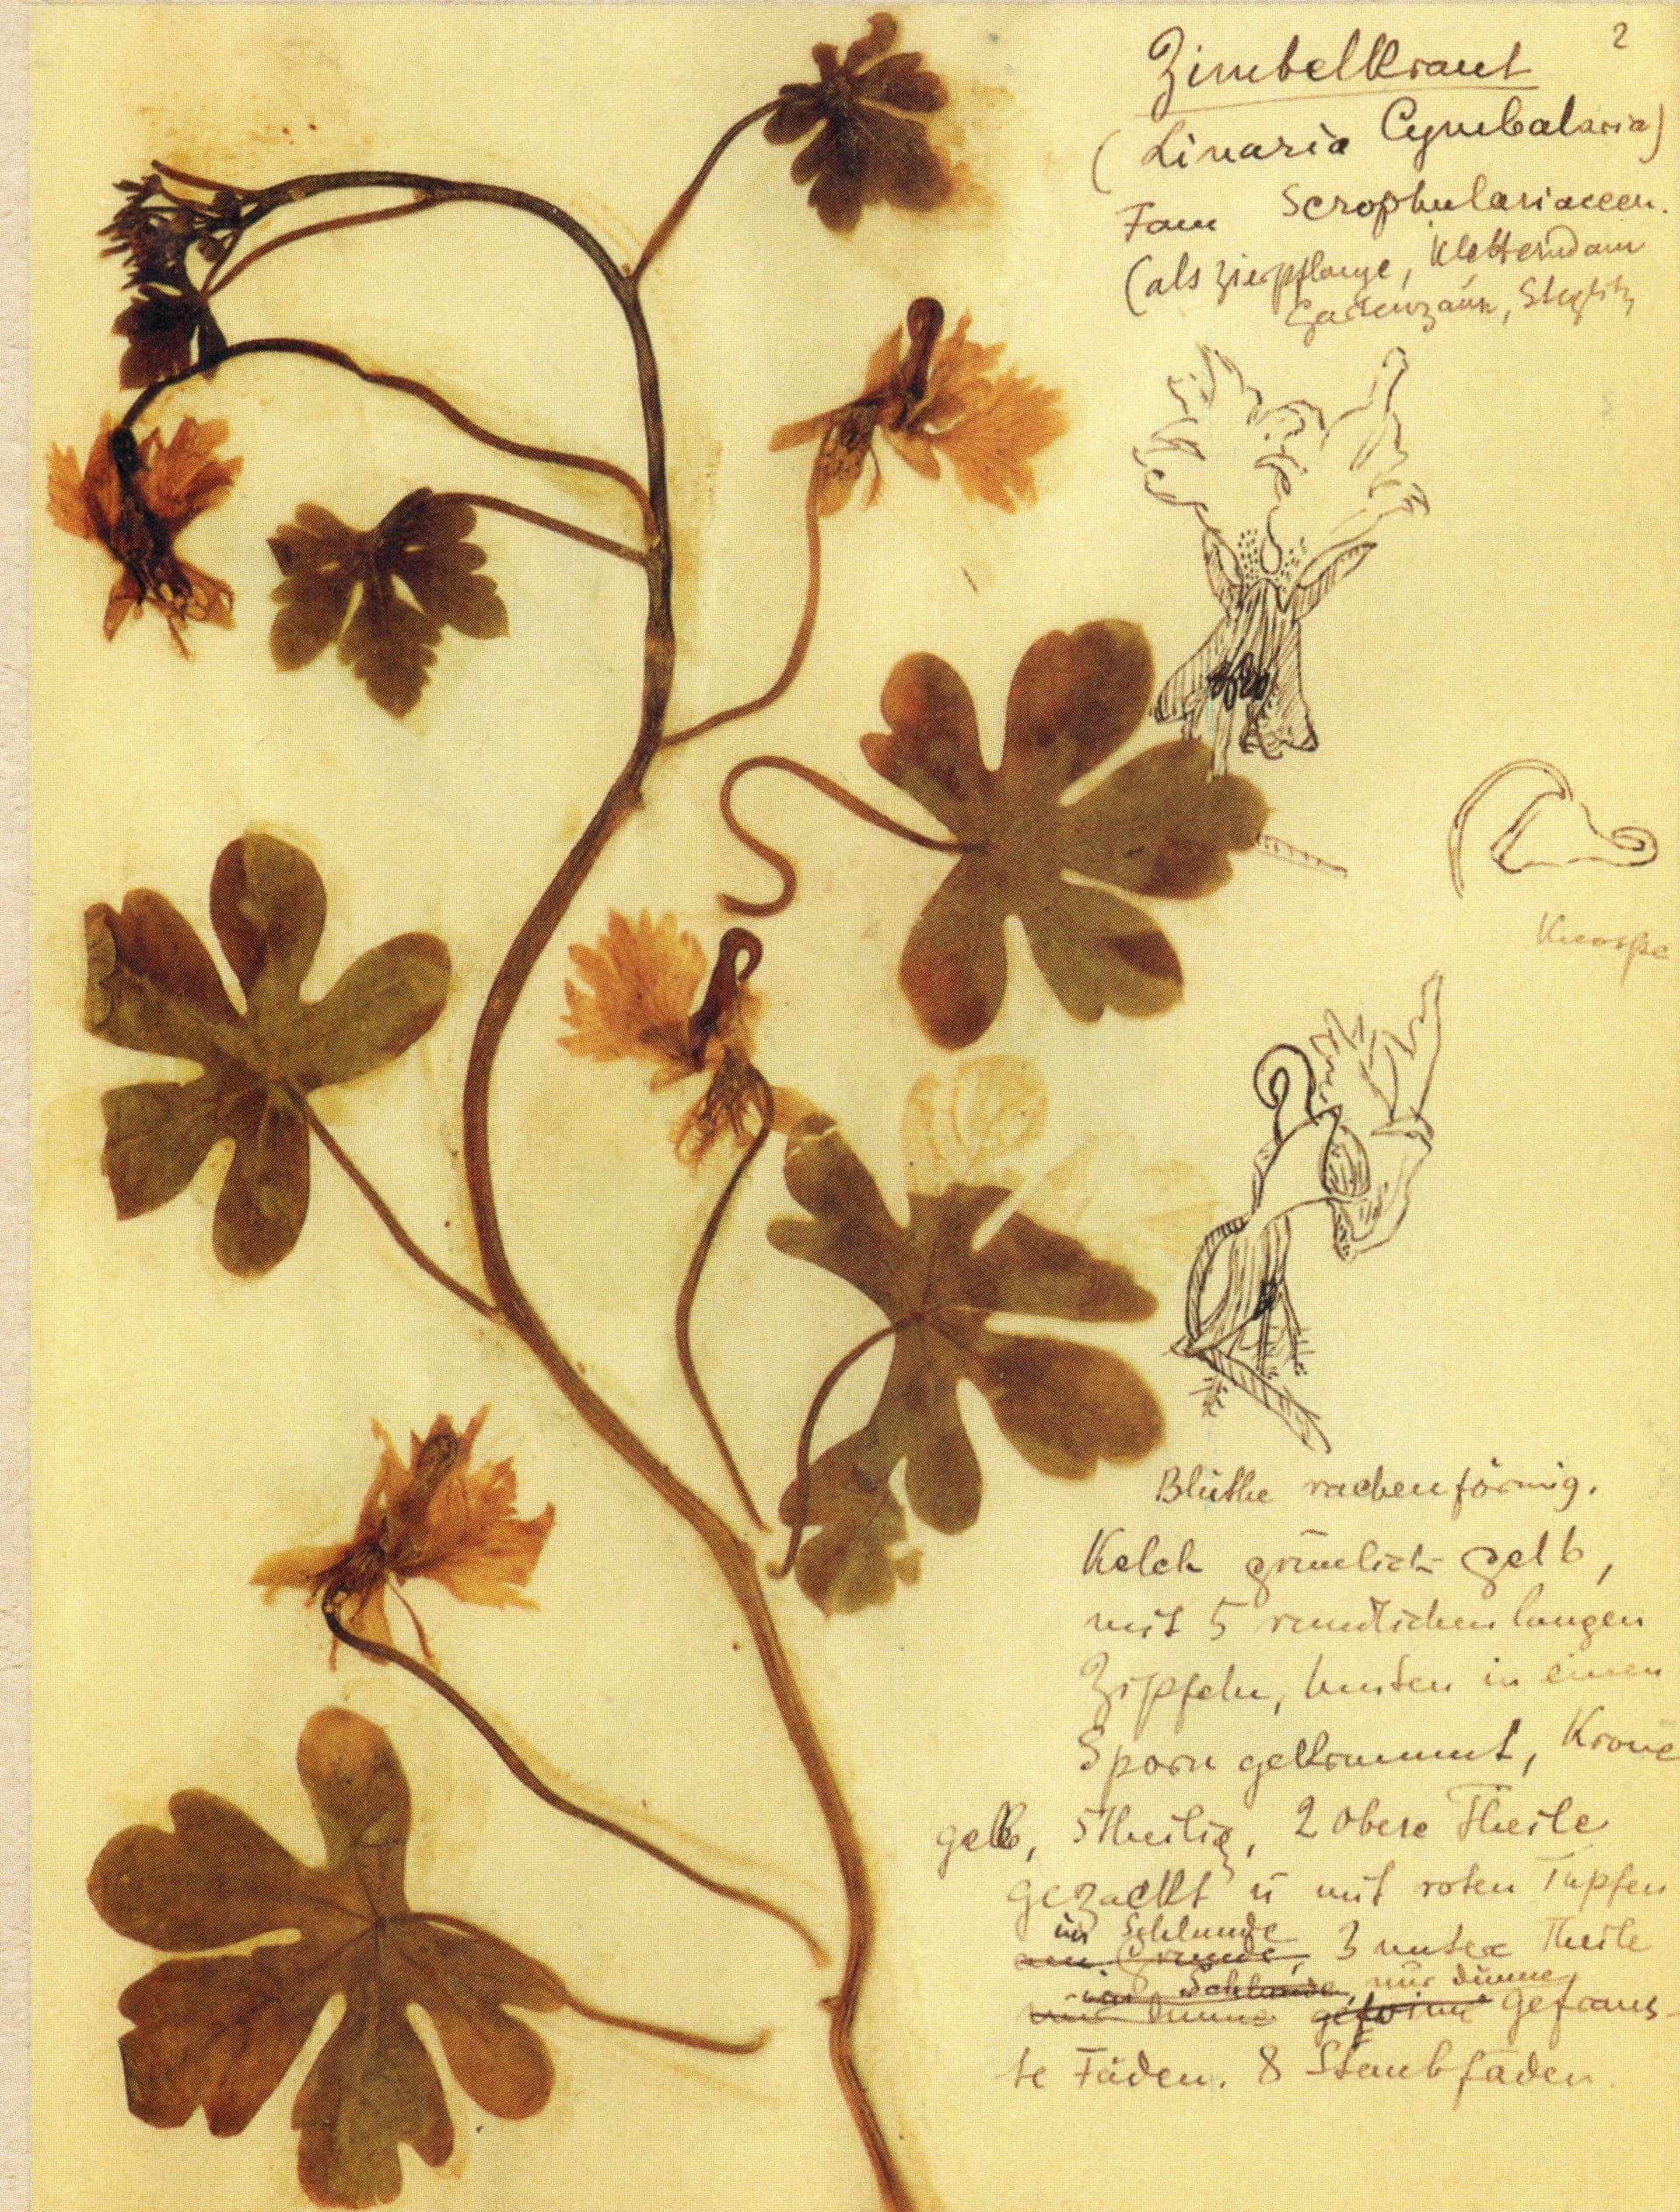 2
Zimbelkraut
(Linaria Cymbalaria)
Fam Scrophulariaceen.
(als Zierpflanze, kletternd am
Gartenzaun, Steglitz
Knospe
Blüthe rachenförmig.
Kelch grünlich gelb,
mit 5 rundlichen langen
Zipfeln, hinten in einen
Sporn gekrümmt, Krone
gelb, 5theilig, 2 obere Theile
gezackt ü mit roten Tupfen
im Schlunde
am Grunde, 3 untere Theile
im Schlunde, nur dünne,
nur dünne gefrans-
te Fäden. 8 Staubfäden.